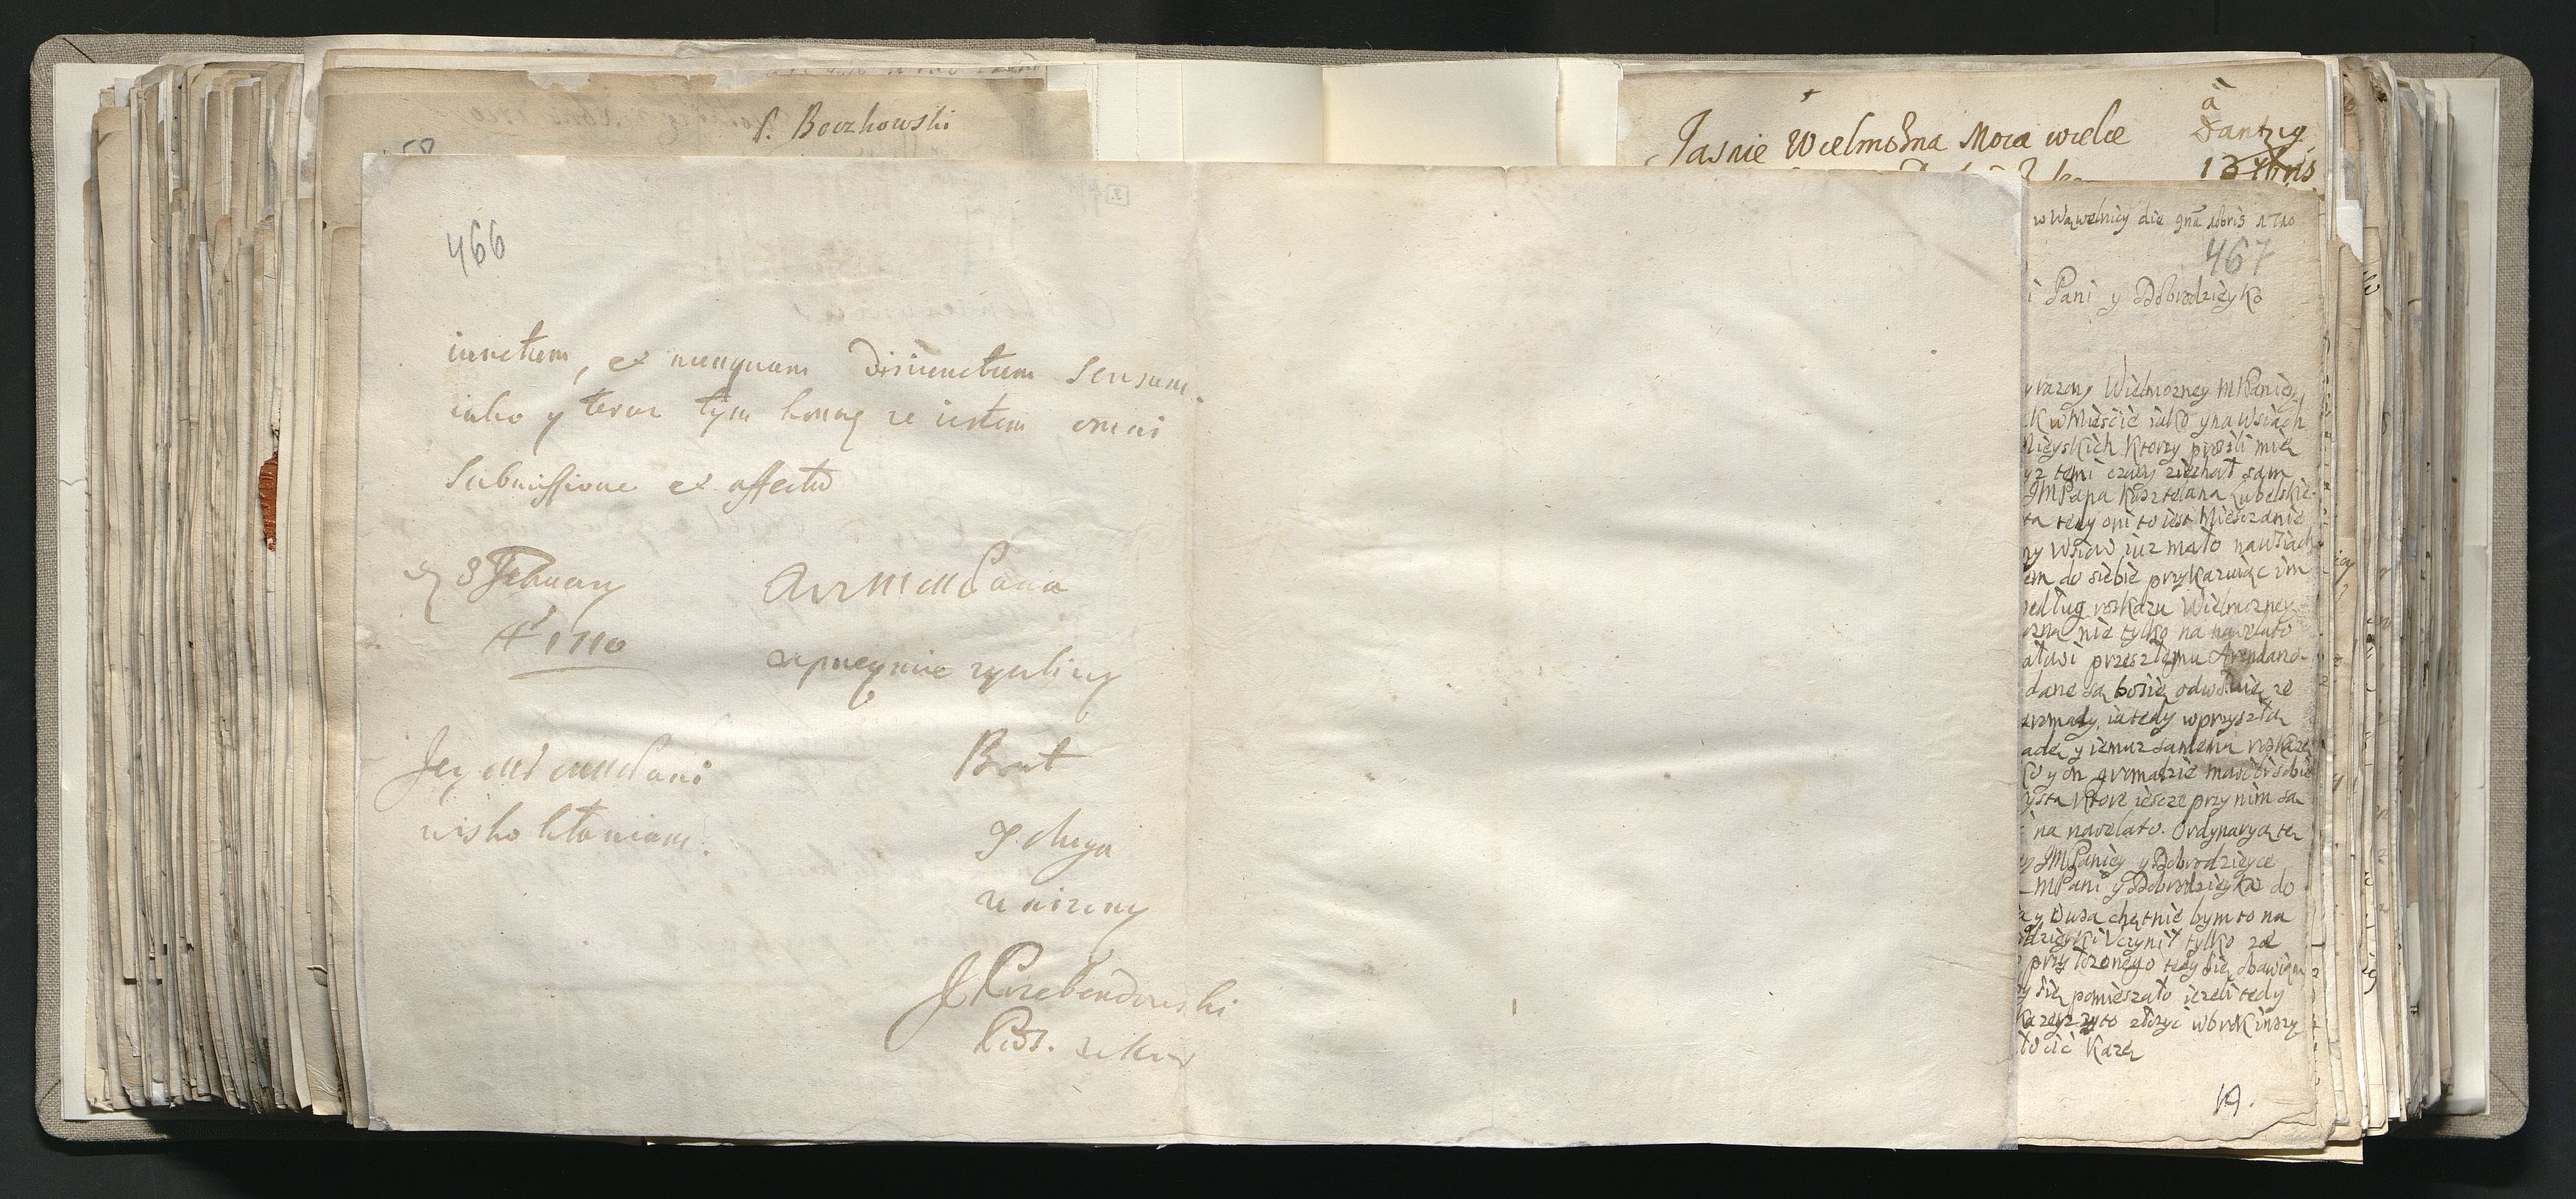 P. Boczkowski
466
iunctum, et nunquam Disiunctum Sensum.
iako y teraz tym konczę ze iestem omni
Submissione et affectu
8 February
Aº 1710
WMM Pana
uprzeymie zyczliwy
Brat
y sługa
unizony
J Przebendowski
PWM.
Jey Mci MM Pani
nisko kłaniam.
Jasnie Wielmożna Moia wielce
â
Dantzig
13 Xbris
w Wąwelnicy die 9na Xbris 1710
467
i Pani y Dobrodzieyko
yrazony Wielmozney MPaniey
K w Mieście iako y na Wsiach
Mieyskich Ktorzy prosili mię
yz temi czasy ziechał sam
JMPana Kasztelana Lubelskie-
ta tedy oni to iest Mieszczanie
ny Wsiow iuz mało na wsiach
em do siebie przykazuiąc im
według roskazu Wielmozney
ozna nie tylko na nawelato
atwi przeszłemu Arendarzo-
dane są bosię odwołuią ze
gromady, ia tedy w przyszłą
adę y iemuz samemu roskazę
Co y on gromadzie mowi ri sobie
ysta Ktore iescze przy nim są
na nawelato. Ordynaryą tę
JMPaniey y Dobrodzieyce
MPani y Dobrodzieyka do
y Dusa chętnie bym to na
dzieyki Uczynił tylko ze
przyłozonego tedy się obawiam
y się pomieszało iezeli tedy
Kaze zyto złozyć w brok inszy
łocić Karzę
19.